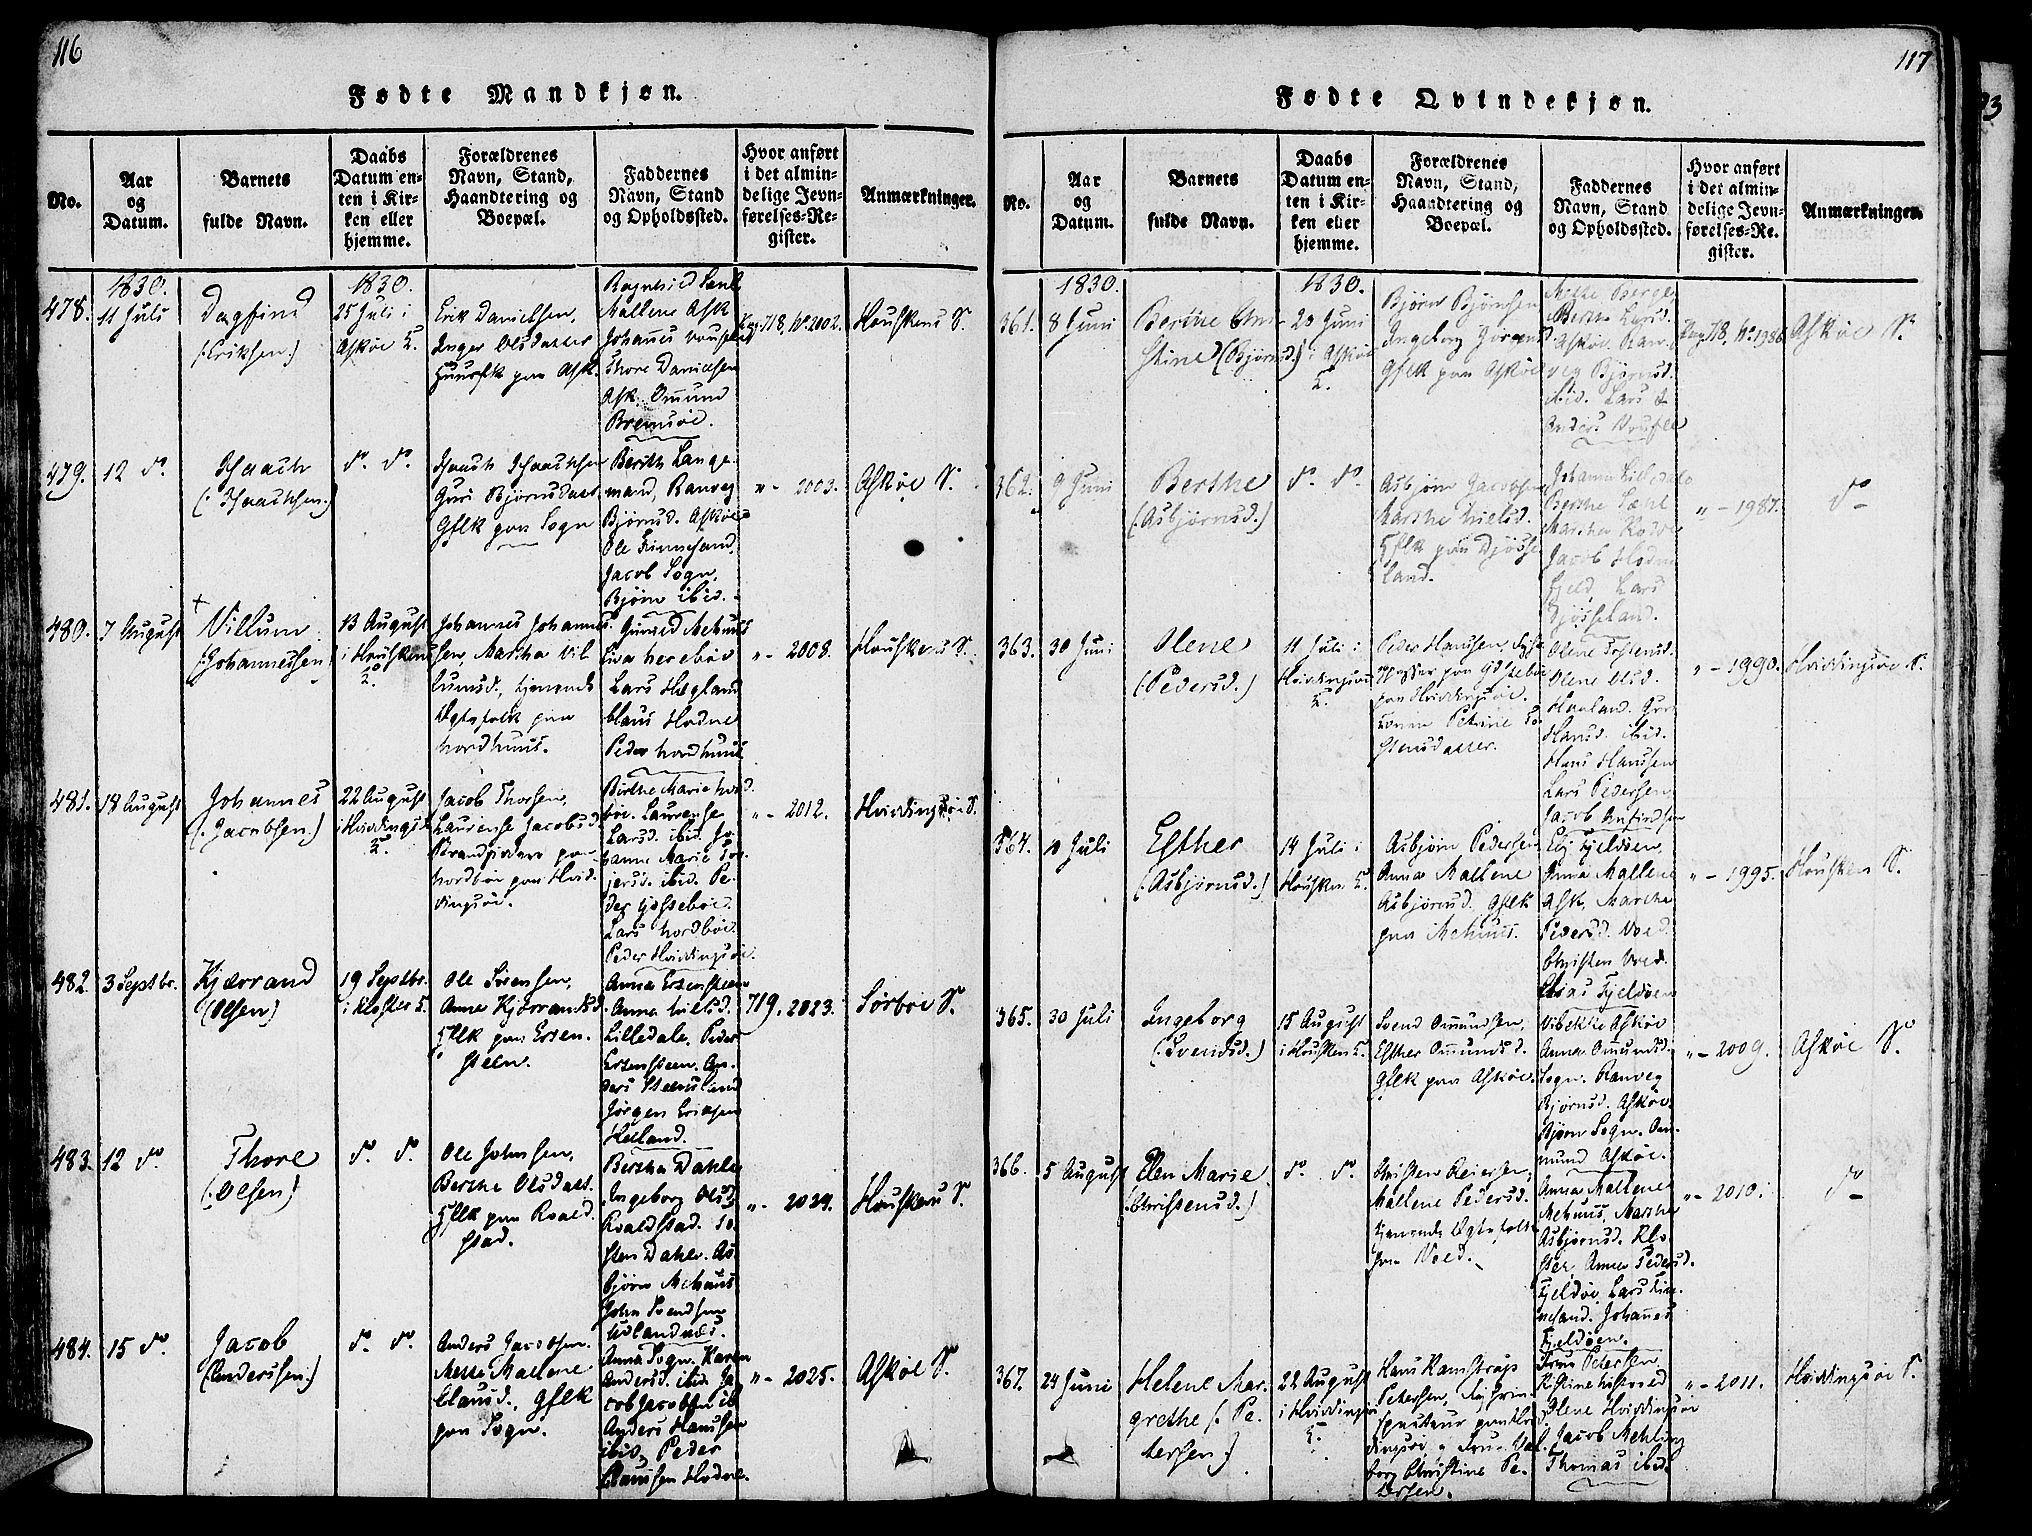 116
Fødte Mandkjøn.
No.
Aar
og
Datum.
Barnets
fulde Navn.
Daabs
Datum en-
ten i Kir-
ken eller
hjemme.
Forældrenes
Navn, Stand,
Haandtering og
Boepæl.
Faddernes
Navn, Stand
og Opholdssted.
Hvor anført
i det almin-
delige Jevn-
førelses-Re-
gister.
Anmærkninger.
478.
1830.
11 Juli
Dagfind
(:Eriksen:)
1830.
25 Juli i
Askøe K.
Erik Danielsen,
Inger Olsdatter
Huusfk paa Ask.
Mallene Ask
Thore Danielsen
Ask. Omund
Bremsøe.
718, No 2002.
Houskens S.
479.
12 do
Isaach
(:Isaachsen:)
do do
Isaach Isaachsen
Guri Bjørnsdatt
Gflk paa Sogn
Berith Lange-
mand, Ranveg
Bjørnsd. Askøe
Ole Finnesand,
Jacob Sogn,
Bjørn ibid.
" - 2003.
Askøe S.
480.
7 August
Villum
(:Johannessen:)
13 August
i Houskens
K.
Johannes Johannes-
sen, Martha Vil-
lumsd., tjenende
Ægtefolk paa
Nordhuus.
Gunild Mehuus
Lars Hægland
Claus Hodne
Peder Nordhuus
" - 2008.
Houskens S.
481.
18 August
Johannes
(:Jacobsen:)
22 August
i Hviddingsø
K.
Jacob Thorsen,
Laurense Jacobsd.
Strandsiddere paa
Nordbøe paa Hvid-
dingsøe.
Birthe Marie Nord-
bøe. Laurense
Larsd. ibid. Jo-
hanne Marie To-
jersd. ibid. Pe-
der Gjesseboe.
Lars Nordbøe.
Peder Hviddingsøe.
" - 2012.
Hviddingsøe S.
482.
3 Septbr.
Kjærrand
(Olsen)
19 Septbr.
i Kloster K.
Ole Svensen,
Anne Kjærrandsd.
Gflk paa Ersen-
steen.
Anna Ersensteen
Anna Nielsd.
Lilledale. Peder
Ersensteen. An-
ders Steensland
Jørgen Eriksen
Helland.
719. 2023.
Sørbøe S.
483.
12 do
Thore
(:Olsen)
do do
Ole Johnsen,
Berthe Olsdatt.
Gflk paa Roald-
stad.
Bertha Dahle
Ingeborg Olsd
Roaldstad. To-
sten Dahle. As-
bjørn Mehuus
John Svendsen
Uslandnæs.
" - 2024.
Houskens S.
484.
15 do
Jacob
(:Anderssen:)
do do
Anders Jacobsen
Mette Mallene
Clausd., Gflk
paa Sogn.
Anna Sogn. Karen
Andersd. ibid. Ja-
cob Jacobsen ib
Anders Hansen
ibid, Peder
Claussen Hodne.
" - 2025.
Askøe S.
117
Fødte Qvindekjøn.
No.
Aar
og
Datum.
Barnets
fulde Navn.
Daabs
Datum en-
ten i Kir-
ken eller
hjemme.
Forældrenes
Navn, Stand,
Haandtering og
Boepæl.
Faddernes
Navn, Stand
og Opholdssted.
Hvor anført
i det almin-
delige Jevn-
førelses-Re-
gister.
Anmærkninger.
361.
1830.
8 Juni
Berthe Chri-
stine (Bjørnsd.)
1830.
20 Juni
i Askøe
K.
Bjørn Bjørnsen
Ingeborg Jørgensd
Gflk paa Askøe
Berthe Larsd.
Askøe. Ran-
veg Bjørnsd.
ibid. Lars &
Anders
Pag. 718, No 1986
Askøe S.
362.
9 Juni
Berthe
(:Asbjørnsd.)
do do
Asbjørn Jacobsen
Marthe Nielsd.
Gflk paa Djøsse-
land.
Johanne Lilledale
Berthe
Martha
Jacob Hodne-
fjeld, Lars
Djøsseland.
" - 1987.
do
363.
30 Juni
Olene
(:Pedersd.)
11 Juli i
Hviddingsøe
K.
Peder Hansen,
paa Hviddingsøe.
Kone Petrine To-
stensdatter.
Olene Tostensd.
Olene Olsd.
Haaland. Guri
Hansd. ibid.
Hans Hanssen
Lars Pedersen
Jacob Anfindsen
" - 1990.
Hviddingsøe S.
364.
11 Juli
Esther
(:Asbjørnsd.)
14 Juli i
Housken K.
Asbjørn Pedersen
Anna Mallene
Asbjørnsd. Gflk
paa Mehuus.
Eli Fjeldøen,
Anna Mallene
Ask, Marthe
Pedersd. Voed.
Christen Voed.
Elias Fjeldøen
" - 1995.
Housken S.
365.
30 Juli
Ingeborg
(:Svendsd.)
15 August
i Housken K.
Svend Omundsen,
Esther Omundsd.
Gflk paa Askøe.
Vibekke Askøe
Anna Omundsd.
Sogn. Ranveg
Bjørnsd. Askøe.
Bjørn Sogn. Om-
mund Askøe.
" - 2009.
Askøe S.
366.
5 August
Elen Marie
(:Christensd.)
do do
Christen Reiersen,
Mallene Pedersd.
tjenende Ægtefolk
paa Voed.
Anna Mallene
Mehuus, Marthe
Asbjørnsd. Klo-
ster, Anna Pedersd.
Fjeldøe, Lars Fin-
nesand. Johannes
Fjeldøen.
" - 2010.
do
367.
24 Juni
Helene Mar-
grethe (: Pe-
tersen:)
22 August
i Hviddingsøe
K.
Hans Kamstrup
Petersen,
paa Hvid-
dingsøe og Frue Val-
borg Christine Pe-
tersen.
Frue Petersen
Olene Hviddingsøe
Jacob Mehling
Thomas ibid.
" - 2011.
Hviddingsøe S.